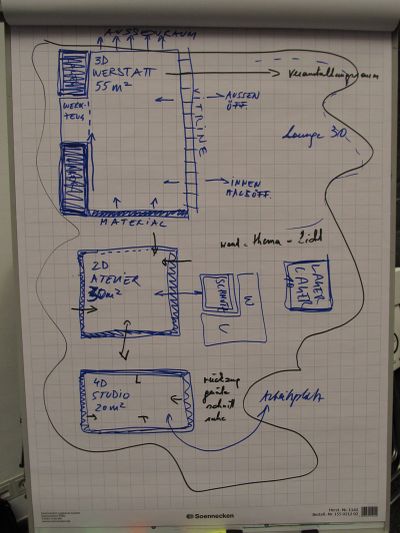 AUSSENRAUM
3D
WERSTATT
55m²
veranstaltungsraum
WERK-
ZEUG
VITRINE
AUSSEN
ÖFF.
Lounge 30
INNEN
HALBÖFF.
MATERIAL
wand - thema - licht
2D
ATELIER
30m²
LAGER
LAGER
4D
STUDIO
20m²
rückzug
geräte
schnitt
ruhe
Arbeitsplatz
Soennecken